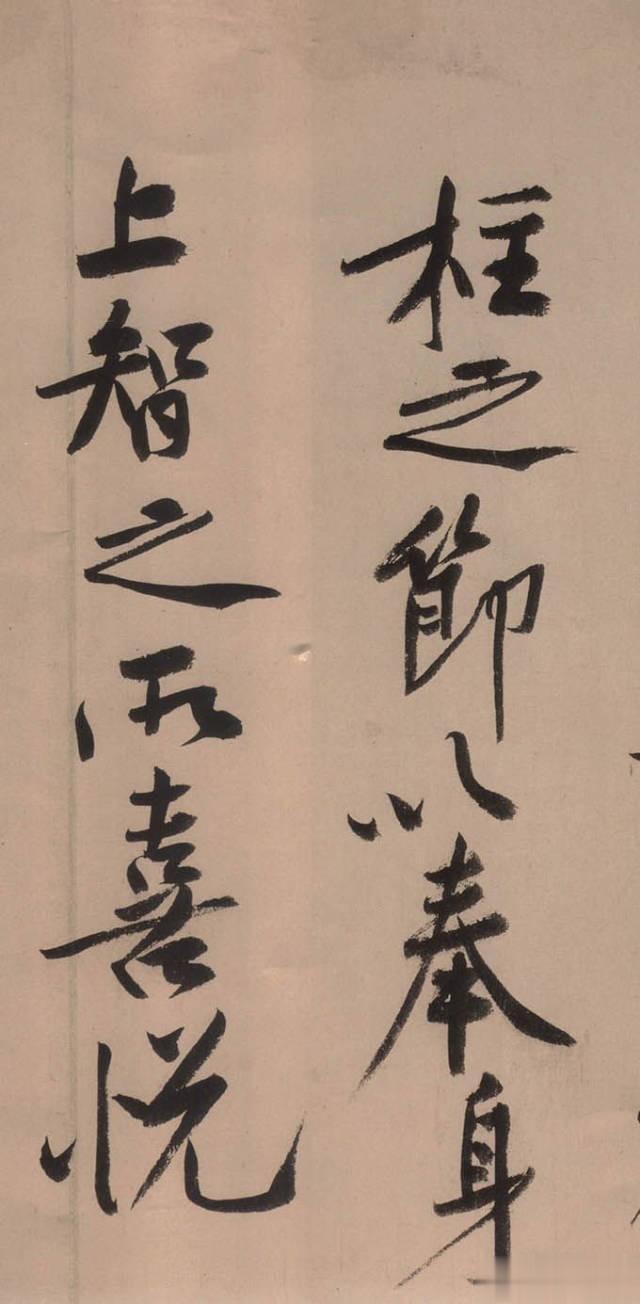 柱之節以奉身
上智之所喜悦